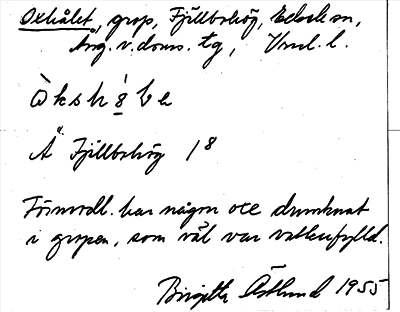 Oxhålet, grop, Fjällbohög, Edebo sn,
Ång. v. doms. tg, Uml. l.
Å Fjällbohög 1⁸
Förmodl. har någon oxe drunknat
i gropen, som väl var vattenfylld.
Birgitta Östlund 1955